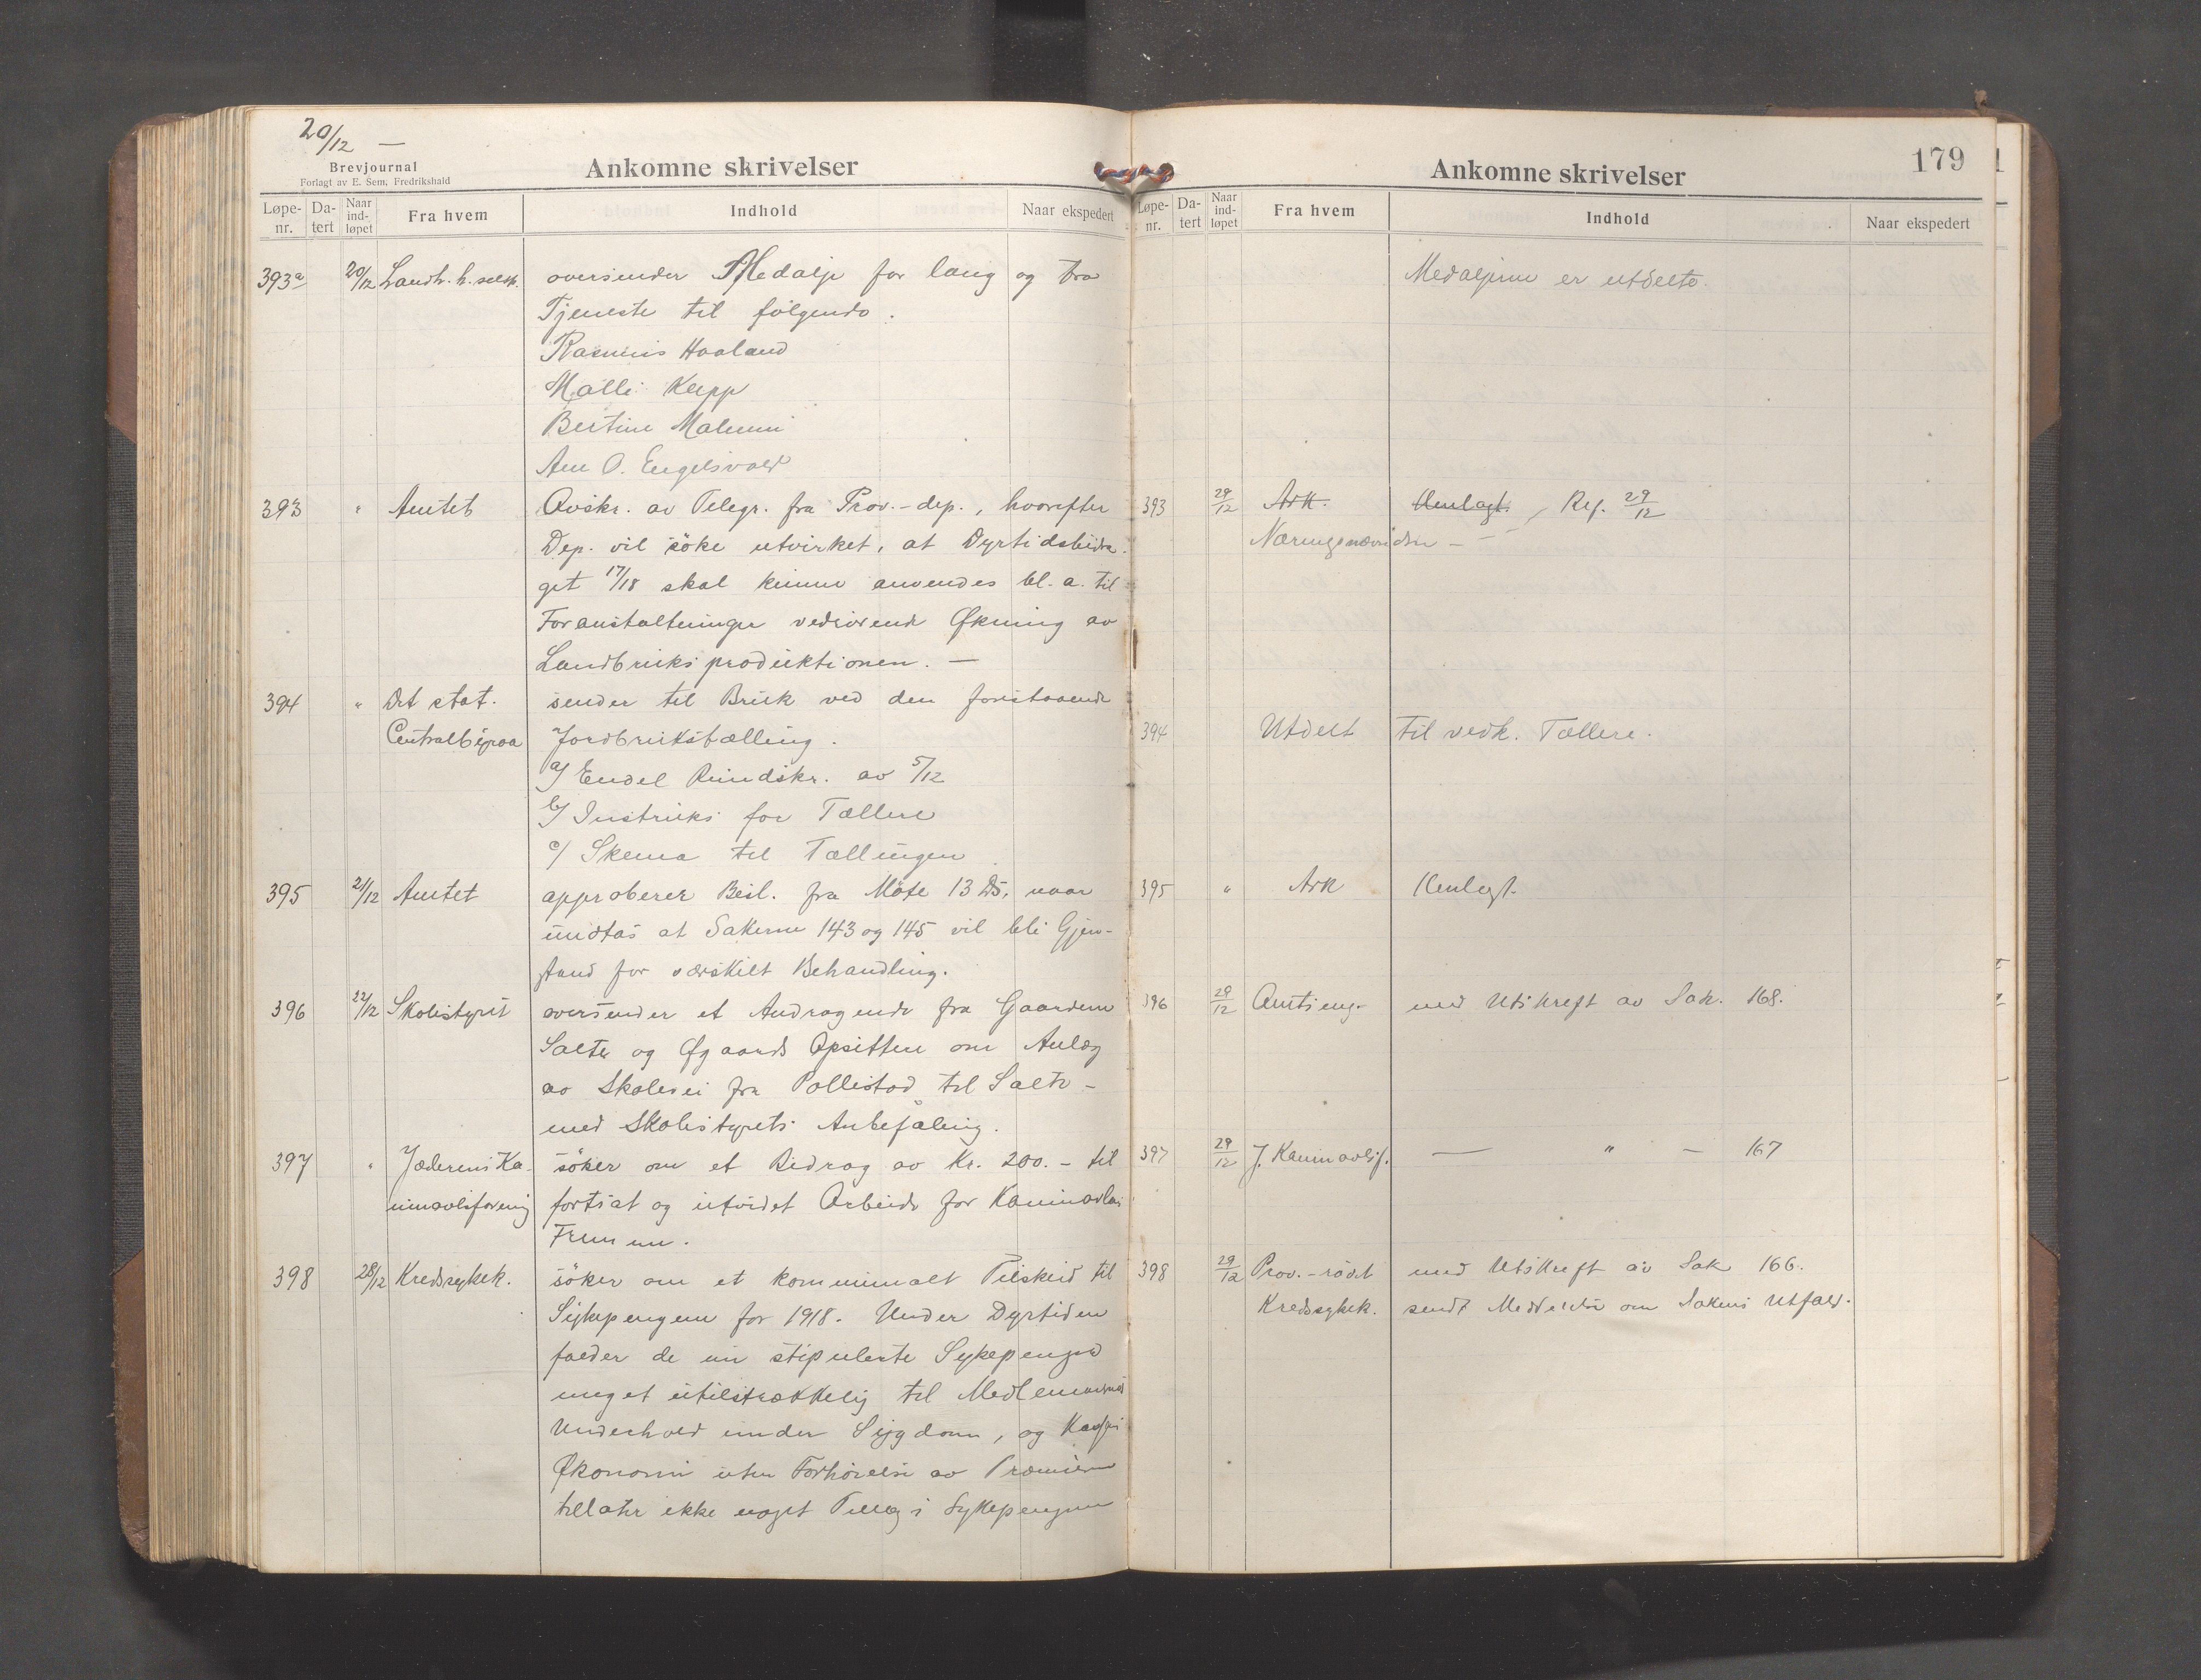 20/12 —
Brevjournal
Forlagt av E. Sem, Fredrikshald
Ankomne skrivelser
Løpe-nr. Da-tert Naar ind-løpet Fra hvem Indhold Naar ekspedert
393a 20/12 Landh. h. selsk. oversender Medalje for lang og tro
Tjeneste til følgende.
Rasmus Haaland
Malli Kepp
Bertine Malmin
Ane O. Engelsvold
393 " Amtet Avskr. av Telegr. fra Prov.-dep., hvorefter
Dep. vil söke utvirket, at Dyrtidsbidra-
get 17/18 skal kunne anvendes bl. a. til
Foranstaltninger vedrörende Økning av
Landbruksproduktionen. —
394 " Det stat. sender til Bruk ved den forestaaende
Centralbyraa Jordbrukstælling.
a/ Endel Rundskr. av 5/12
b/ Instruks for Tællere
c/ Skema til Tællingen
395 21/12 Amtet approberer Besl. fra Möte 13 Ds, naar
undtas at Sakerne 143 og 145 vil bli Gjen-
stand for særskilt Behandling.
396 22/12 Skolestyret oversender et Andragende fra Gaardene
Salte og Øgaards Opsittere om Anlæg
av Skolevei fra Pollestad til Salte -
med Skolestyrets Anbefaling.
397 " Jæderens Ka- söker om et Bidrag av Kr. 200.- til
ninavlsforening fortsat og utvidet Arbeide for Kaninavlens
Fremme.
398 28/12 Kredssykek. söker om et kommunalt Tilskud til
Sykepengene for 1918. Under Dyrtiden
falder de nu stipulerte Sykepenger
meget utilstrækkelig til Medlemmernes
Underhold under Sygdom, og Kassens
Økonomi uten Forhöielse av Præmiene
tillater ikke noget Tillæg i Sykepengene
Ankomne skrivelser
179
Løpe-nr. Da-tert Naar ind-løpet Fra hvem Indhold Naar ekspedert
Medaljerne er utdelte.
393 29/12 Ark. Henlagt. Ref. 29/12
Næringsnævnden —
394 Utdelt til vedk. Tællere.
395 " Ark Henlagt.
396 29/12 Amtsing. med Utskrift av Sak. 168.
397 29/12 J. Kaninavlsf. — " — 167
398 29/12 Prov.-rådet med Utskrift av Sak 166.
Kredssykek. sendt Meddelelse om Sakens Utfald.